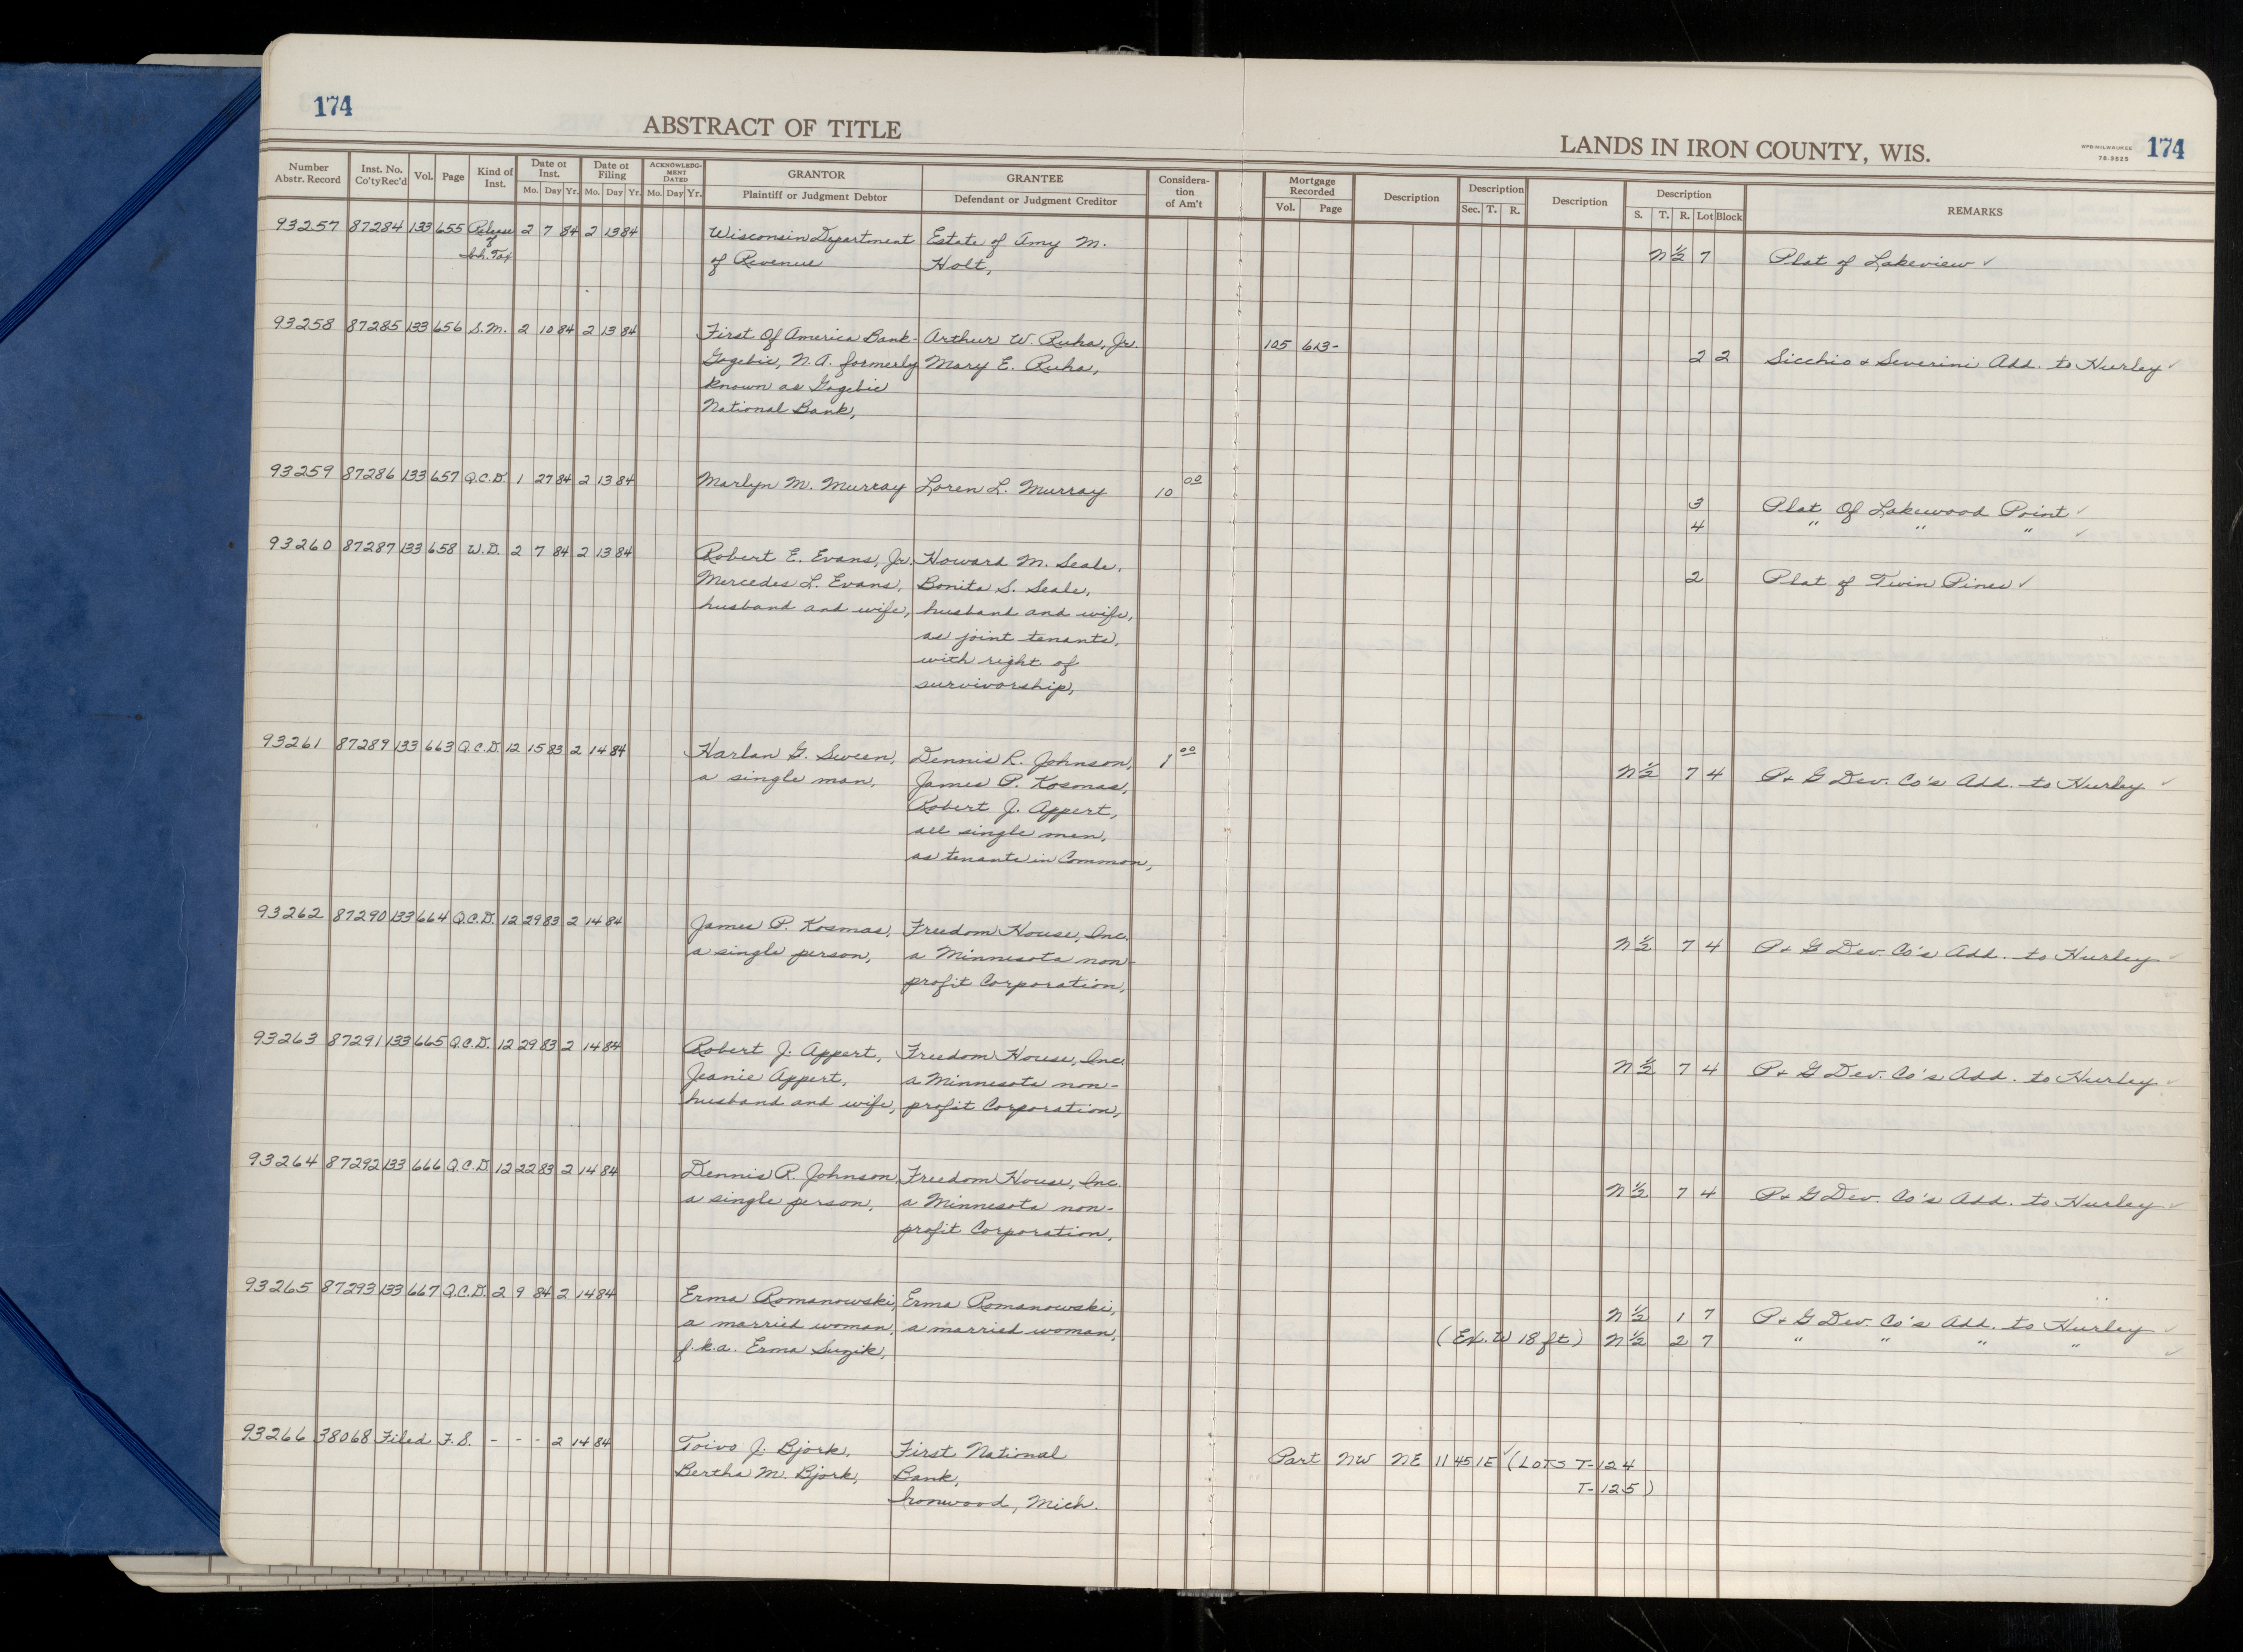 174
ABSTRACT OF TITLE
LANDS IN IRON COUNTY, WIS.
WPB-MILWAUKEE
78-3525
174
Number Abstr. Record Inst. No. Co'ty Rec'd Vol. Page Kind of Inst. Date of Inst. Mo. Day Yr. Date of Filing Mo. Day Yr. ACKNOWLEDGMENT DATED Mo. Day Yr. GRANTOR Plaintiff or Judgment Debtor GRANTEE Defendant or Judgment Creditor Consideration of Am't Mortgage Recorded Vol. Page Description Description Sec. T. R. Description Description S. T. R. Lot Block REMARKS
93257 87284 133 655 Release 2 7 84 2 13 84 Wisconsin Department Estate of Amy M. N ½ 7 Plat of Lakeview ✓
of
Inh. Tax of Revenue Holt,
93258 87285 133 656 S.M. 2 10 84 2 13 84 First Of America Bank- Arthur W. Ruha, Jr. 105 613- 2 2 Sicchio & Severini Add. to Hurley ✓
Gogebic, N.A. formerly Mary E. Ruha,
known as Gogebic
National Bank,
93259 87286 133 657 Q.C.D. 1 27 84 2 13 84 Marlyn M. Murray Loren L. Murray 10 00 3 Plat Of Lakewood Point ✓
4 " " " ✓
93260 87287 133 658 W.D. 2 7 84 2 13 84 Robert E. Evans, Jr. Howard M. Seale, 2 Plat of Twin Pines ✓
Mercedes L. Evans, Bonita S. Seale,
husband and wife, husband and wife,
as joint tenants,
with right of
survivorship,
93261 87289 133 663 Q.C.D. 12 15 83 2 14 84 Harlan G. Sween, Dennis R. Johnson, 1 00 N ½ 7 4 P & G Dev. Co's Add. to Hurley ✓
a single man, James P. Kosmas,
Robert J. Appert,
all single men,
as tenants in Common,
93262 87290 133 664 Q.C.D. 12 29 83 2 14 84 James P. Kosmas, Freedom House, Inc. N ½ 7 4 P & G Dev. Co's Add. to Hurley ✓
a single person, a Minnesota non-
profit Corporation,
93263 87291 133 665 Q.C.D. 12 29 83 2 14 84 Robert J. Appert, Freedom House, Inc. N ½ 7 4 P & G Dev. Co's Add. to Hurley ✓
Jeanie Appert, a Minnesota non-
husband and wife, profit Corporation,
93264 87292 133 666 Q.C.D. 12 22 83 2 14 84 Dennis R. Johnson, Freedom House, Inc. N ½ 7 4 P & G Dev. Co's Add. to Hurley ✓
a single person, a Minnesota non-
profit Corporation,
93265 87293 133 667 Q.C.D. 2 9 84 2 14 84 Erma Romanowski, Erma Romanowski, N ½ 1 7 P & G Dev. Co's Add. to Hurley ✓
a married woman, a married woman, (Ex. W 18 ft) N ½ 2 7 " " " " ✓
f.k.a. Erma Suzik,
93266 38068 Filed F.S. - - - 2 14 84 Toivo J. Bjork, First National Part NW NE 11 45 1E ✓ (LOTS T-124
Bertha M. Bjork, Bank, T-125)
Ironwood, Mich.